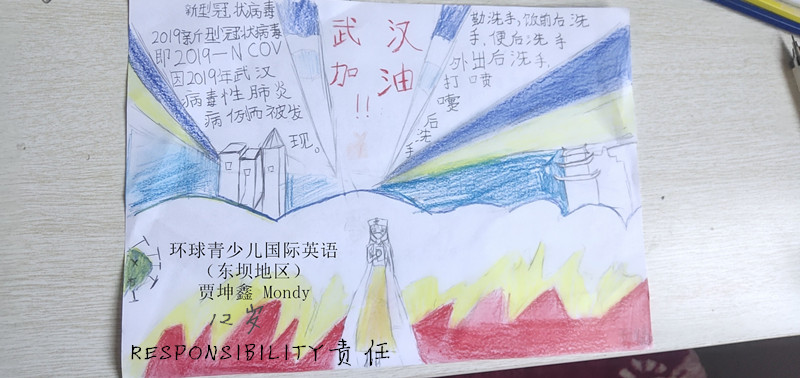 新型冠状病毒
2019新型冠状病毒
即2019-NCOV
因2019年武汉
病毒性肺炎
病例而被发
现。
武汉
加油
!!
勤洗手,饭前后洗
手,便后洗手
外出后洗手,
打喷
嚏
后
洗
手
环球青少儿国际英语
(东坝地区)
贾坤鑫 Mondy
12岁
RESPONSIBILITY责任